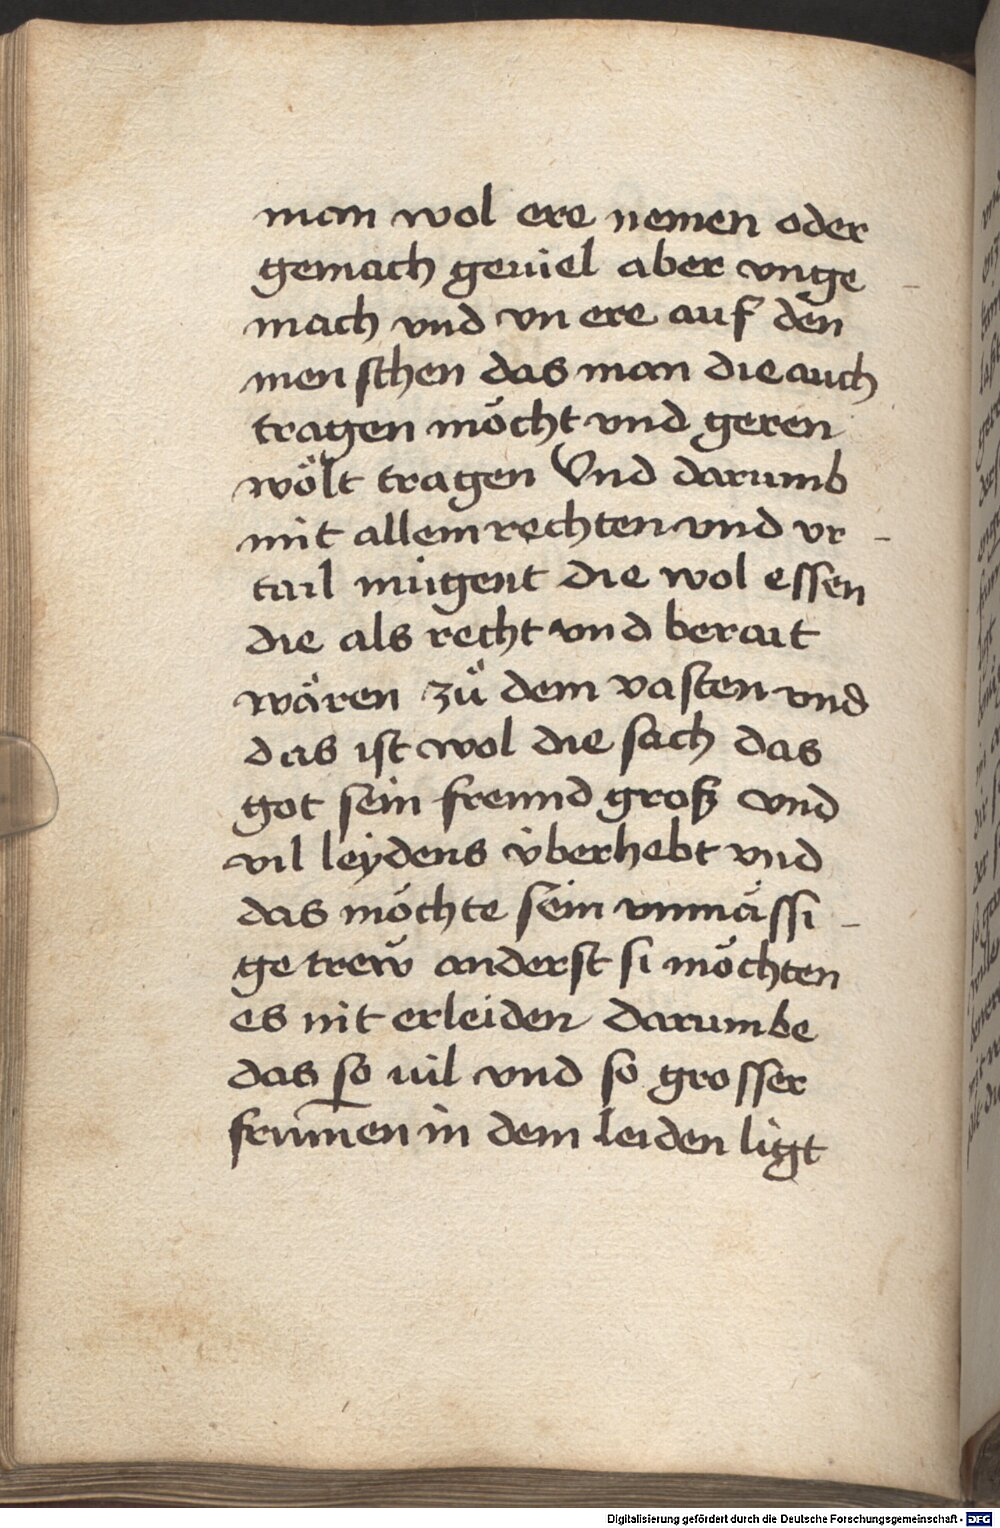 man wol ere nemen oder
gemach geuiel aber vnge-
mach vnd vn ere auf den
menschen das man die auch
tragen möcht vnd geren
wölt tragen Vnd darumb
mit allem rechten vnd vr-
tail mügent die wol essen
die als recht vnd berait
wären zů dem vasten vnd
das ist wol die sach das
got sein freund groß vnd
vil leydens überhebt vnd
das möchte sein vnmässi-
ge trew anderst si möchten
es nit erleiden darumbe
das so uil vnd so grosser
frum̄en in dem leiden ligt
Digitalisierung gefördert durch die Deutsche Forschungsgemeinschaft - DFG